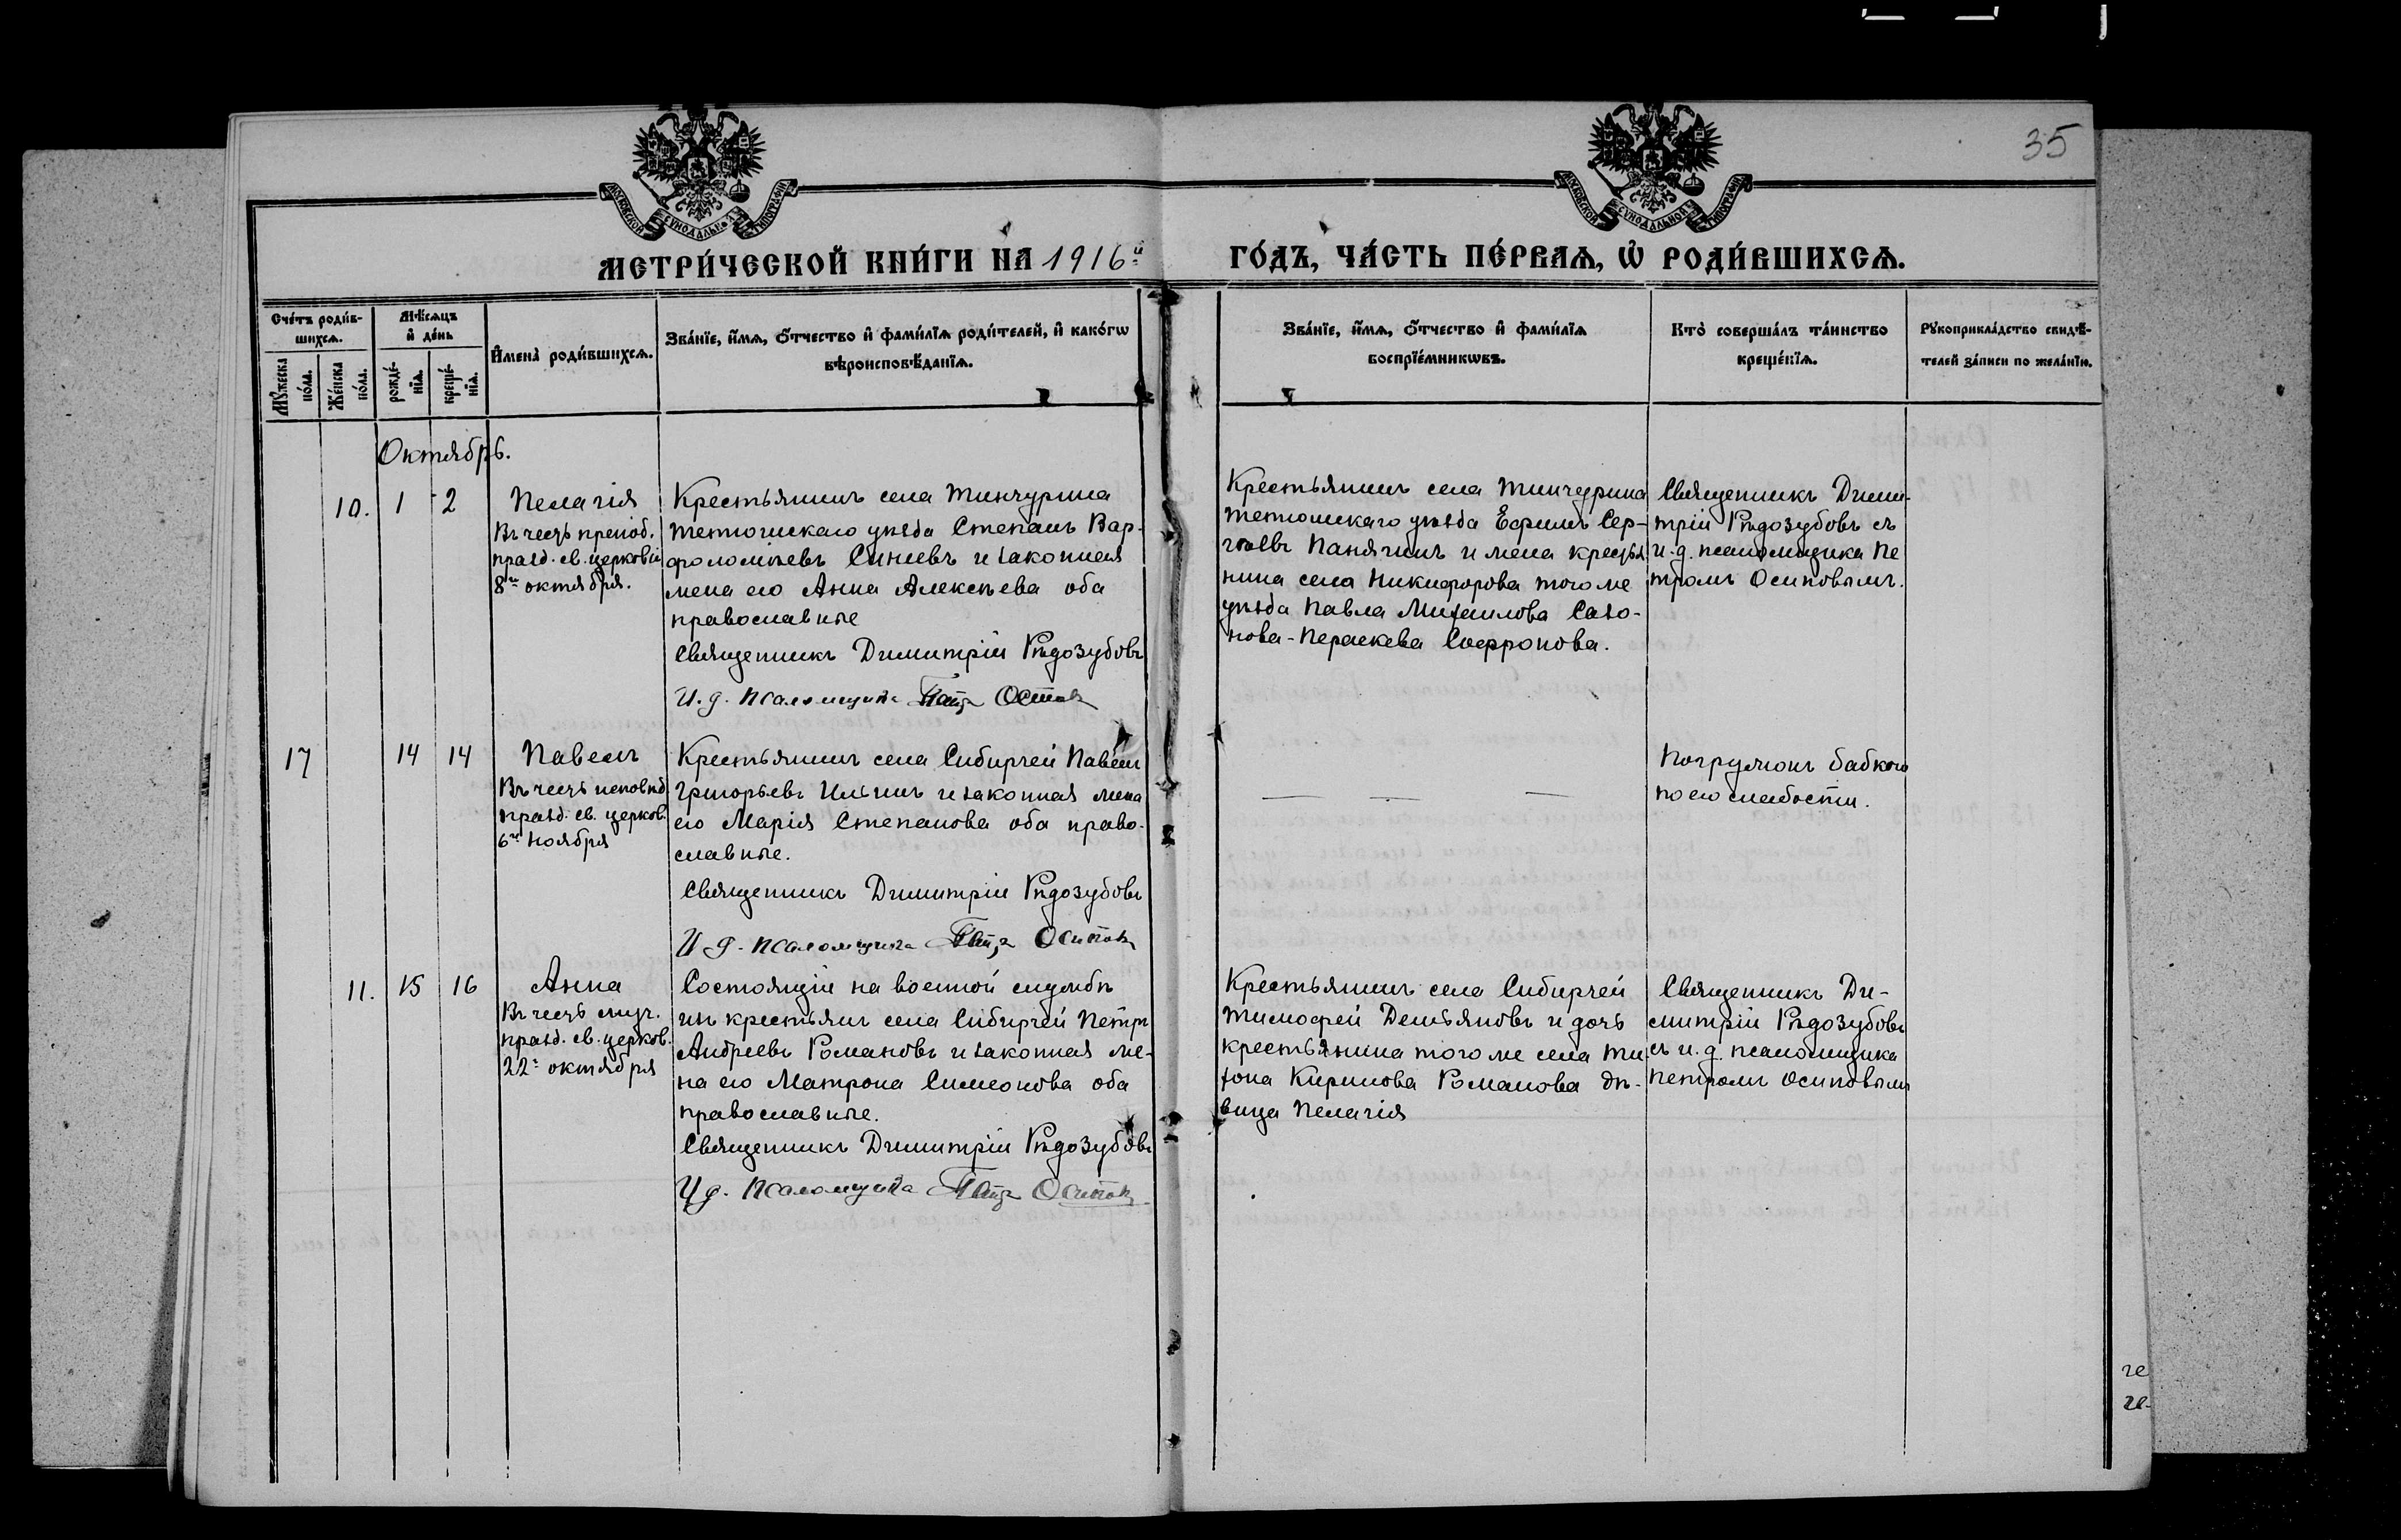 35
МОСКОВСКОЙ СѴНОДАЛЬНОЙ ТИПОГРАФІИ
МОСКОВСКОЙ СѴНОДАЛЬНОЙ ТИПОГРАФІИ
МЕТРИ́ЧЕСКОЙ КНИ́ГИ НА 1916й ГО́ДЪ, ЧА́СТЬ ПЕ́РВАѦ, Ѡ РОДИ́ВШИХСѦ.
Сче́тъ роди́в-
шихсѧ.
Мꙋ́жеска
по́ла.
Же́нска
по́ла.
Мѣ́сѧцъ
и де́нь
рожде́-
нїѧ.
креще́-
нїѧ.
И҆мена̀ роди́вшихсѧ.
Зва́нїе, и҆́мѧ, ѻ҆́тчество и҆ фами́лїѧ роди́телей, и҆ како́гѡ
вѣроисповѣ́данїѧ.
Зва́нїе, и҆́мѧ, ѻ҆́тчество и҆ фами́лїѧ
воспрїе́мникѡвъ.
Кто̀ соверша́лъ та́инство
креще́нїѧ.
Рꙋкоприкла́дство свидѣ́-
телей за́писи по жела́нїю.
Октябрь.
10. 1 2
Пелагія
Въ честь препод.
празд. св. церковію
8го октября.
Крестьянинъ села Тинчурина
Тетюшскаго уѣзда Степанъ Вар-
ѳоломѣевъ Синеевъ и законная
жена его Анна Алексѣева оба
православные
Священникъ Димитрій Рѣдозубовъ
И. д. псаломщика Петръ Осипов
Крестьянинъ села Тинчурина
Тетюшскаго уѣзда Ефимъ Сер-
гѣевъ Панячинъ и жена крестья
нина села Никифорова того же
уѣзда Павла Михаилова Сазо-
нова - Параскева Софронова.
Священникъ Дими-
трій Рѣдозубовъ съ
и. д. псаломщика Пе
тромъ Осиповымъ.
17 14 14
Павелъ
Въ честь исповѣд.
празд. св. церков.
6го ноября
Крестьянинъ села Сибирчей Павелъ
Григорьевъ Ильинъ и законная жена
его Марія Степанова оба право-
славные.
Священникъ Димитрій Рѣдозубовъ
И д. псаломщика Петр Осипов
— — —
Погружонъ бабкою
по его слабости.
11. 15 16
Анна
Въ честь муч.
празд. св. церков.
22го октября
Состоящій на военной службѣ
изъ крестьянъ села Сибирчей Петръ
Андреевъ Романовъ и законная же-
на его Матрона Симеонова оба
православные.
Священникъ Димитрій Рѣдозубовъ
И д. псаломщика Петр Осипов
Крестьянинъ села Сибирчей
Тимоѳей Демьяновъ и дочь
крестьянина того же села Ти
хона Кирилова Романова дѣ-
вица Пелагія
Священникъ Ди-
митрій Рѣдозубовъ
съ и. д. псаломщика
Петромъ Осиповымъ